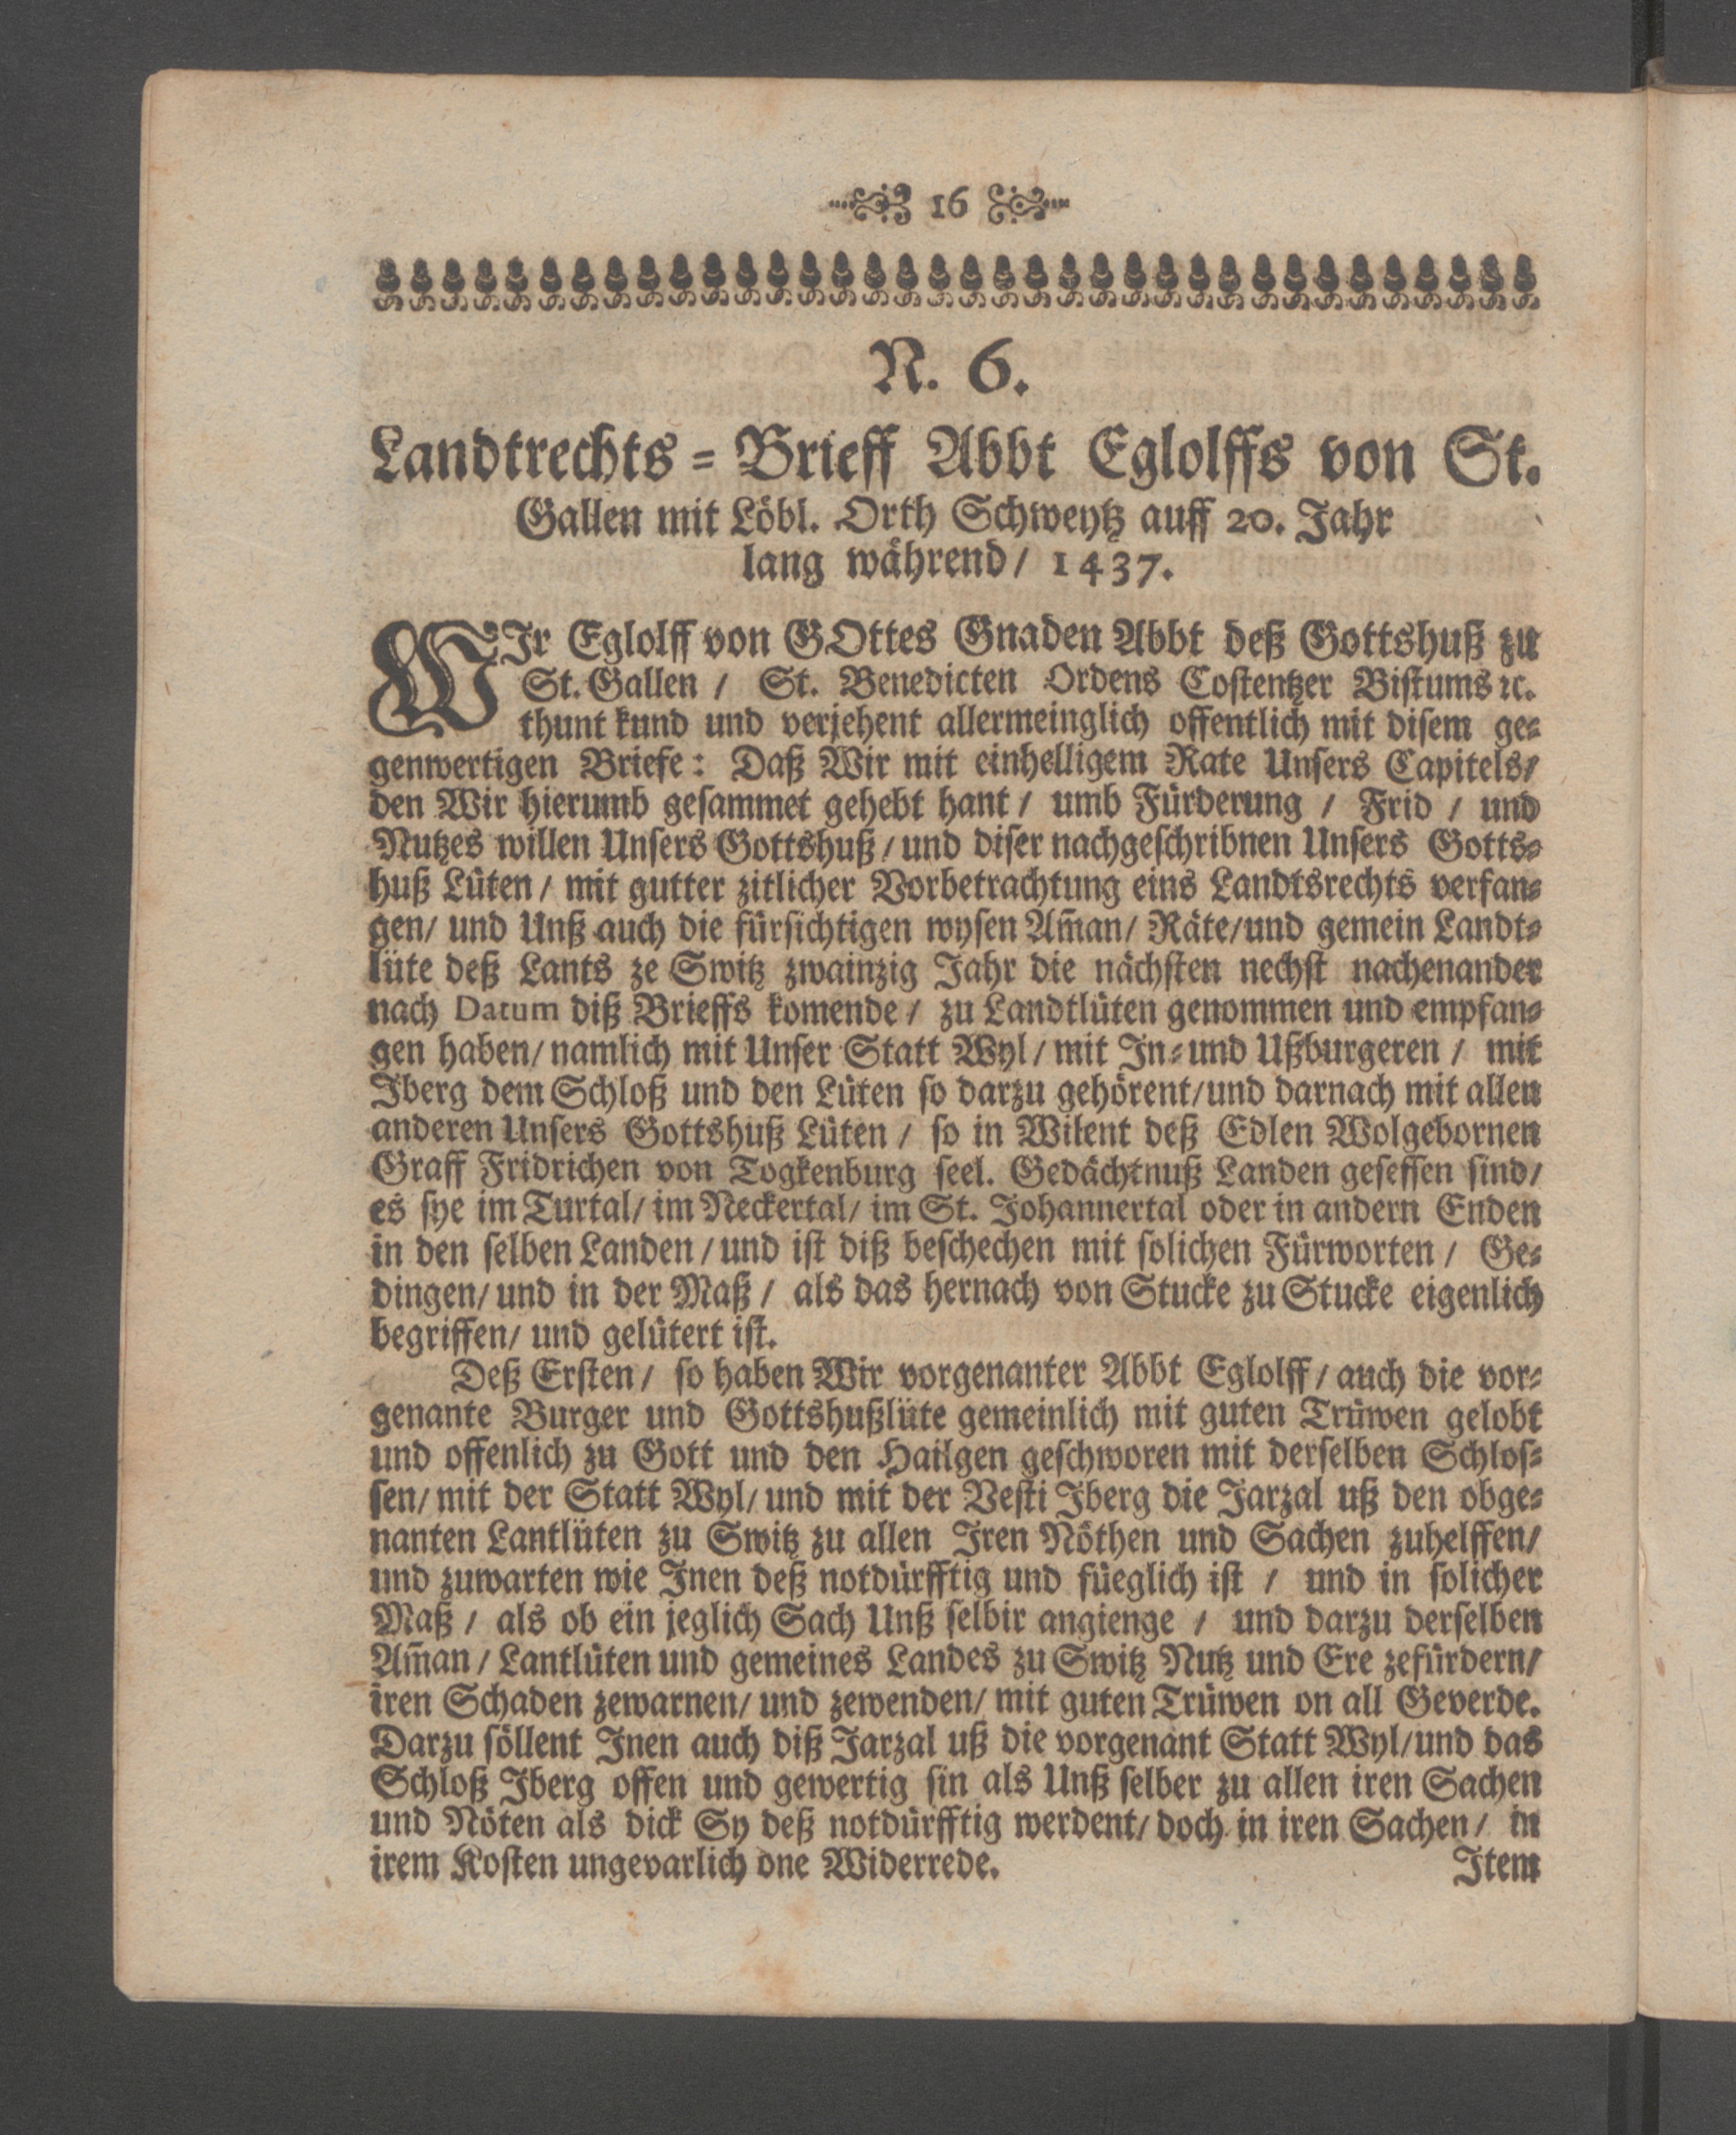 16
N. 6.
Landtrechts = Brieff Abbt Eglolffs von St.
Gallen mit Löbl. Orth Schweytz auff 20. Jahr
lang während / 1437.
WIr Eglolff von GOttes Gnaden Abbt deß Gottshuß zu
St. Gallen / St. Benedicten Ordens Costentzer Bistums ꝛc.
thunt kund und verjehent allermeinglich offentlich mit disem ge=
genwertigen Briefe: Daß Wir mit einhelligem Rate Unsers Capitels/
den Wir hierumb gesammet gehebt hant / umb Fürderung / Frid / und
Nutzes willen Unsers Gottshuß / und diser nachgeschribnen Unsers Gotts=
huß Lüten / mit gutter zitlicher Vorbetrachtung eins Landtsrechts verfan=
gen/ und Unß auch die fürsichtigen wysen Am̄an/ Räte/und gemein Landt=
lüte deß Lants ze Switz zwainzig Jahr die nächsten nechst nachenander
nach Datum diß Brieffs komende / zu Landtlüten genommen und empfan=
gen haben/ namlich mit Unser Statt Wyl / mit In= und Ußburgeren / mit
Iberg dem Schloß und den Lüten so darzu gehörent/und darnach mit allen
anderen Unsers Gottshuß Lüten / so in Wilent deß Edlen Wolgebornen
Graff Fridrichen von Togkenburg seel. Gedächtnuß Landen gesessen sind/
es sye im Turtal/ im Neckertal/ im St. Johannertal oder in andern Enden
in den selben Landen / und ist diß beschechen mit solichen Fürworten / Ge=
dingen/ und in der Maß / als das hernach von Stucke zu Stucke eigenlich
begriffen/ und gelütert ist.
Deß Ersten / so haben Wir vorgenanter Abbt Eglolff / auch die vor=
genante Burger und Gottshußlüte gemeinlich mit guten Trüwen gelobt
und offenlich zu Gott und den Hailgen geschworen mit derselben Schlos=
sen/ mit der Statt Wyl/ und mit der Vesti Iberg die Jarzal uß den obge=
nanten Lantlüten zu Switz zu allen Iren Nöthen und Sachen zuhelffen/
und zuwarten wie Inen deß notdürfftig und füeglich ist / und in solicher
Maß / als ob ein jeglich Sach Unß selbir angienge / und darzu derselben
Am̄an / Lantlüten und gemeines Landes zu Switz Nutz und Ere zefürdern/
iren Schaden zewarnen/ und zewenden/ mit guten Trüwen on all Geverde.
Darzu söllent Inen auch diß Jarzal uß die vorgenant Statt Wyl/und das
Schloß Iberg offen und gewertig sin als Unß selber zu allen iren Sachen
und Nöten als dick Sy deß notdürfftig werdent/ doch in iren Sachen / in
irem Kosten ungevarlich one Widerrede.
Item